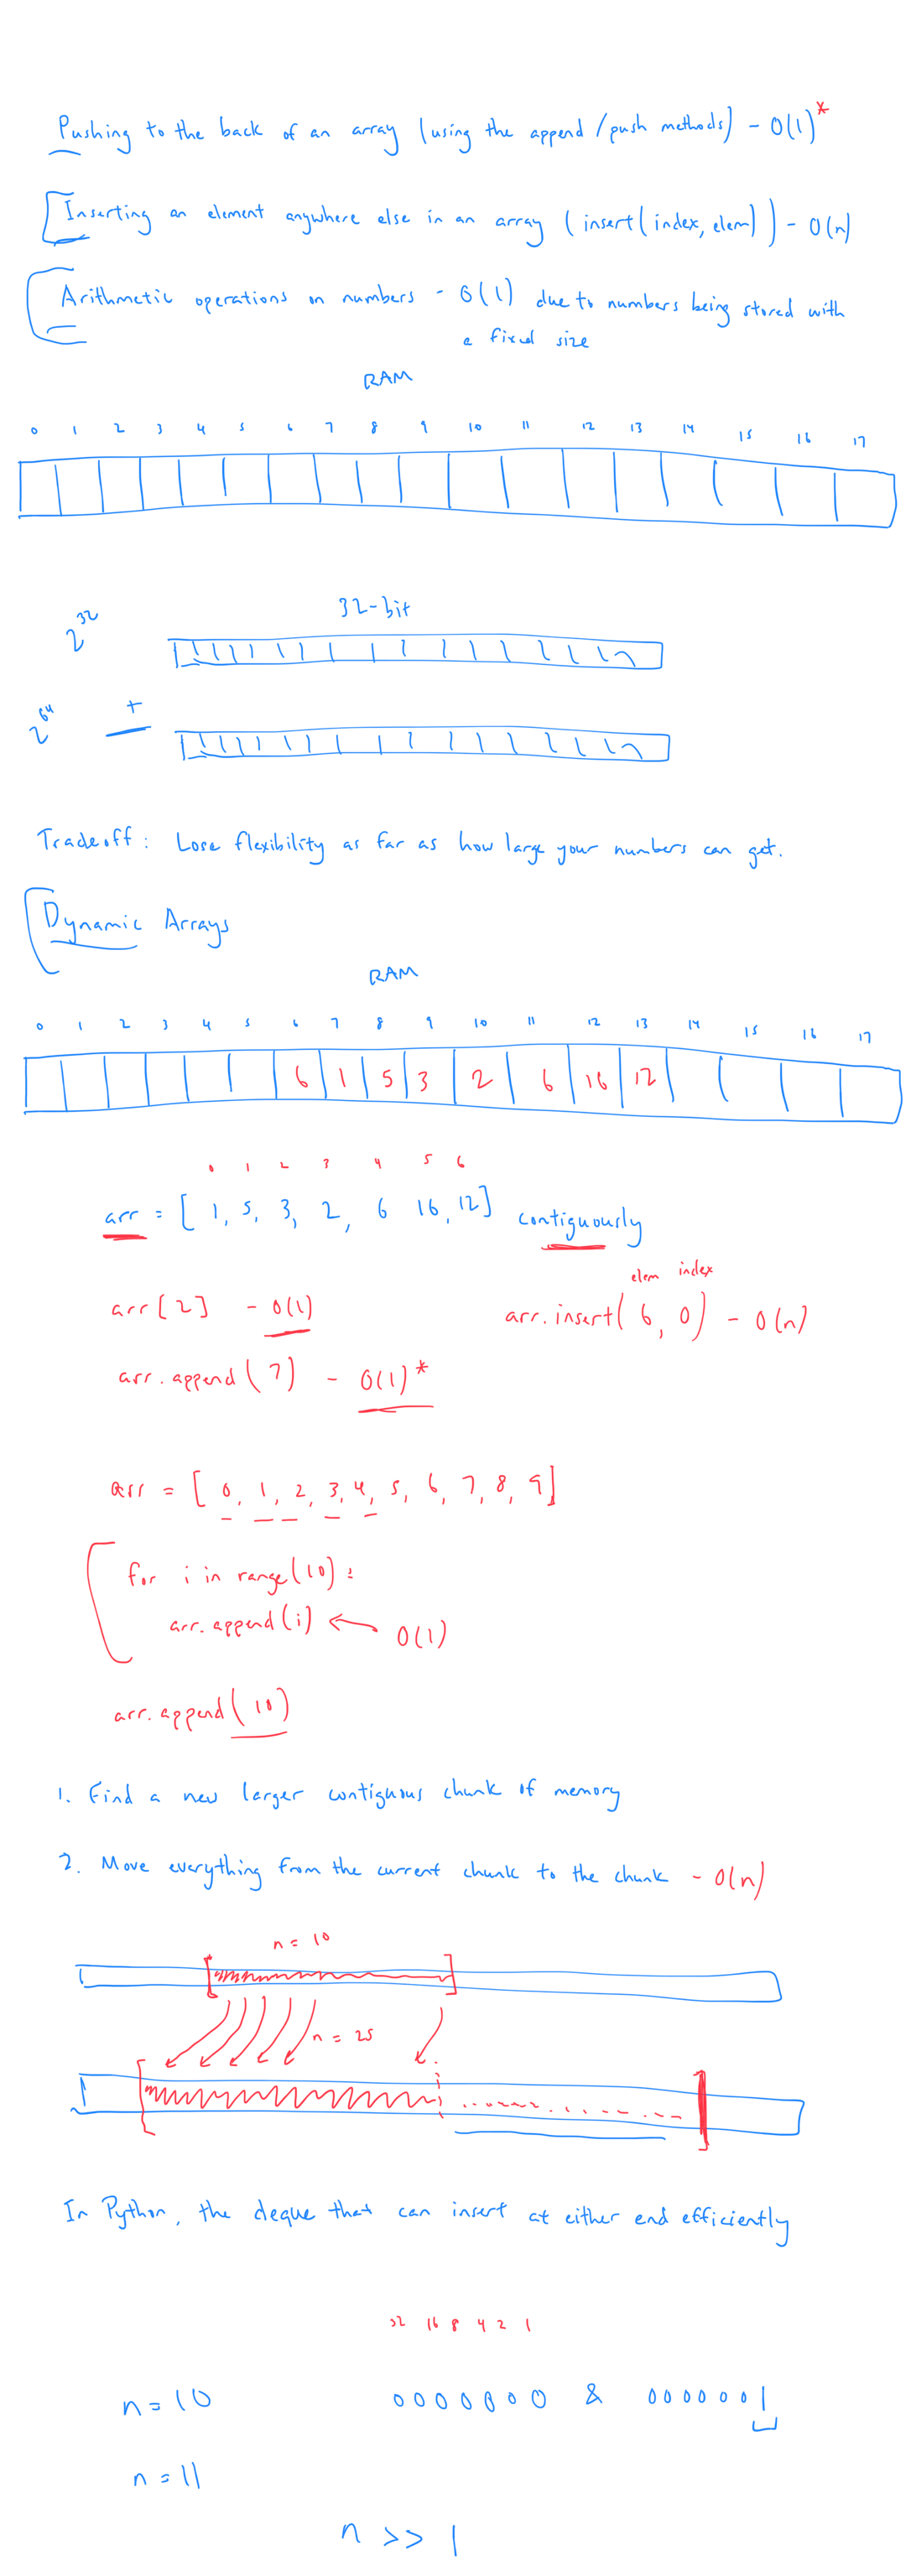 Pushing to the back of an array (using the append/push methods) - O(1)*
Inserting an element anywhere else in an array (insert(index, elem)) - O(n)
Arithmetic operations on numbers - O(1) due to numbers being stored with
a fixed size
RAM
0 1 2 3 4 5 6 7 8 9 10 11 12 13 14 15 16 17
2^32 32-bit
2^64 +
Tradeoff: Lose flexibility as far as how large your numbers can get.
Dynamic Arrays
RAM
0 1 2 3 4 5 6 7 8 9 10 11 12 13 14 15 16 17
6 1 5 3 2 6 16 12
0 1 2 3 4 5 6
arr = [1, 5, 3, 2, 6 16, 12] contiguously
elem index
arr[2] - O(1) arr.insert(6, 0) - O(n)
arr.append(7) - O(1)*
arr = [0, 1, 2, 3, 4, 5, 6, 7, 8, 9]
for i in range(10):
arr.append(i) ← O(1)
arr.append(10)
1. Find a new larger contiguous chunk of memory
2. Move everything from the current chunk to the chunk - O(n)
n = 10
n = 25
In Python, the deque that can insert at either end efficiently
32 16 8 4 2 1
n = 10 0000000 & 0000001
n = 11
n >> 1